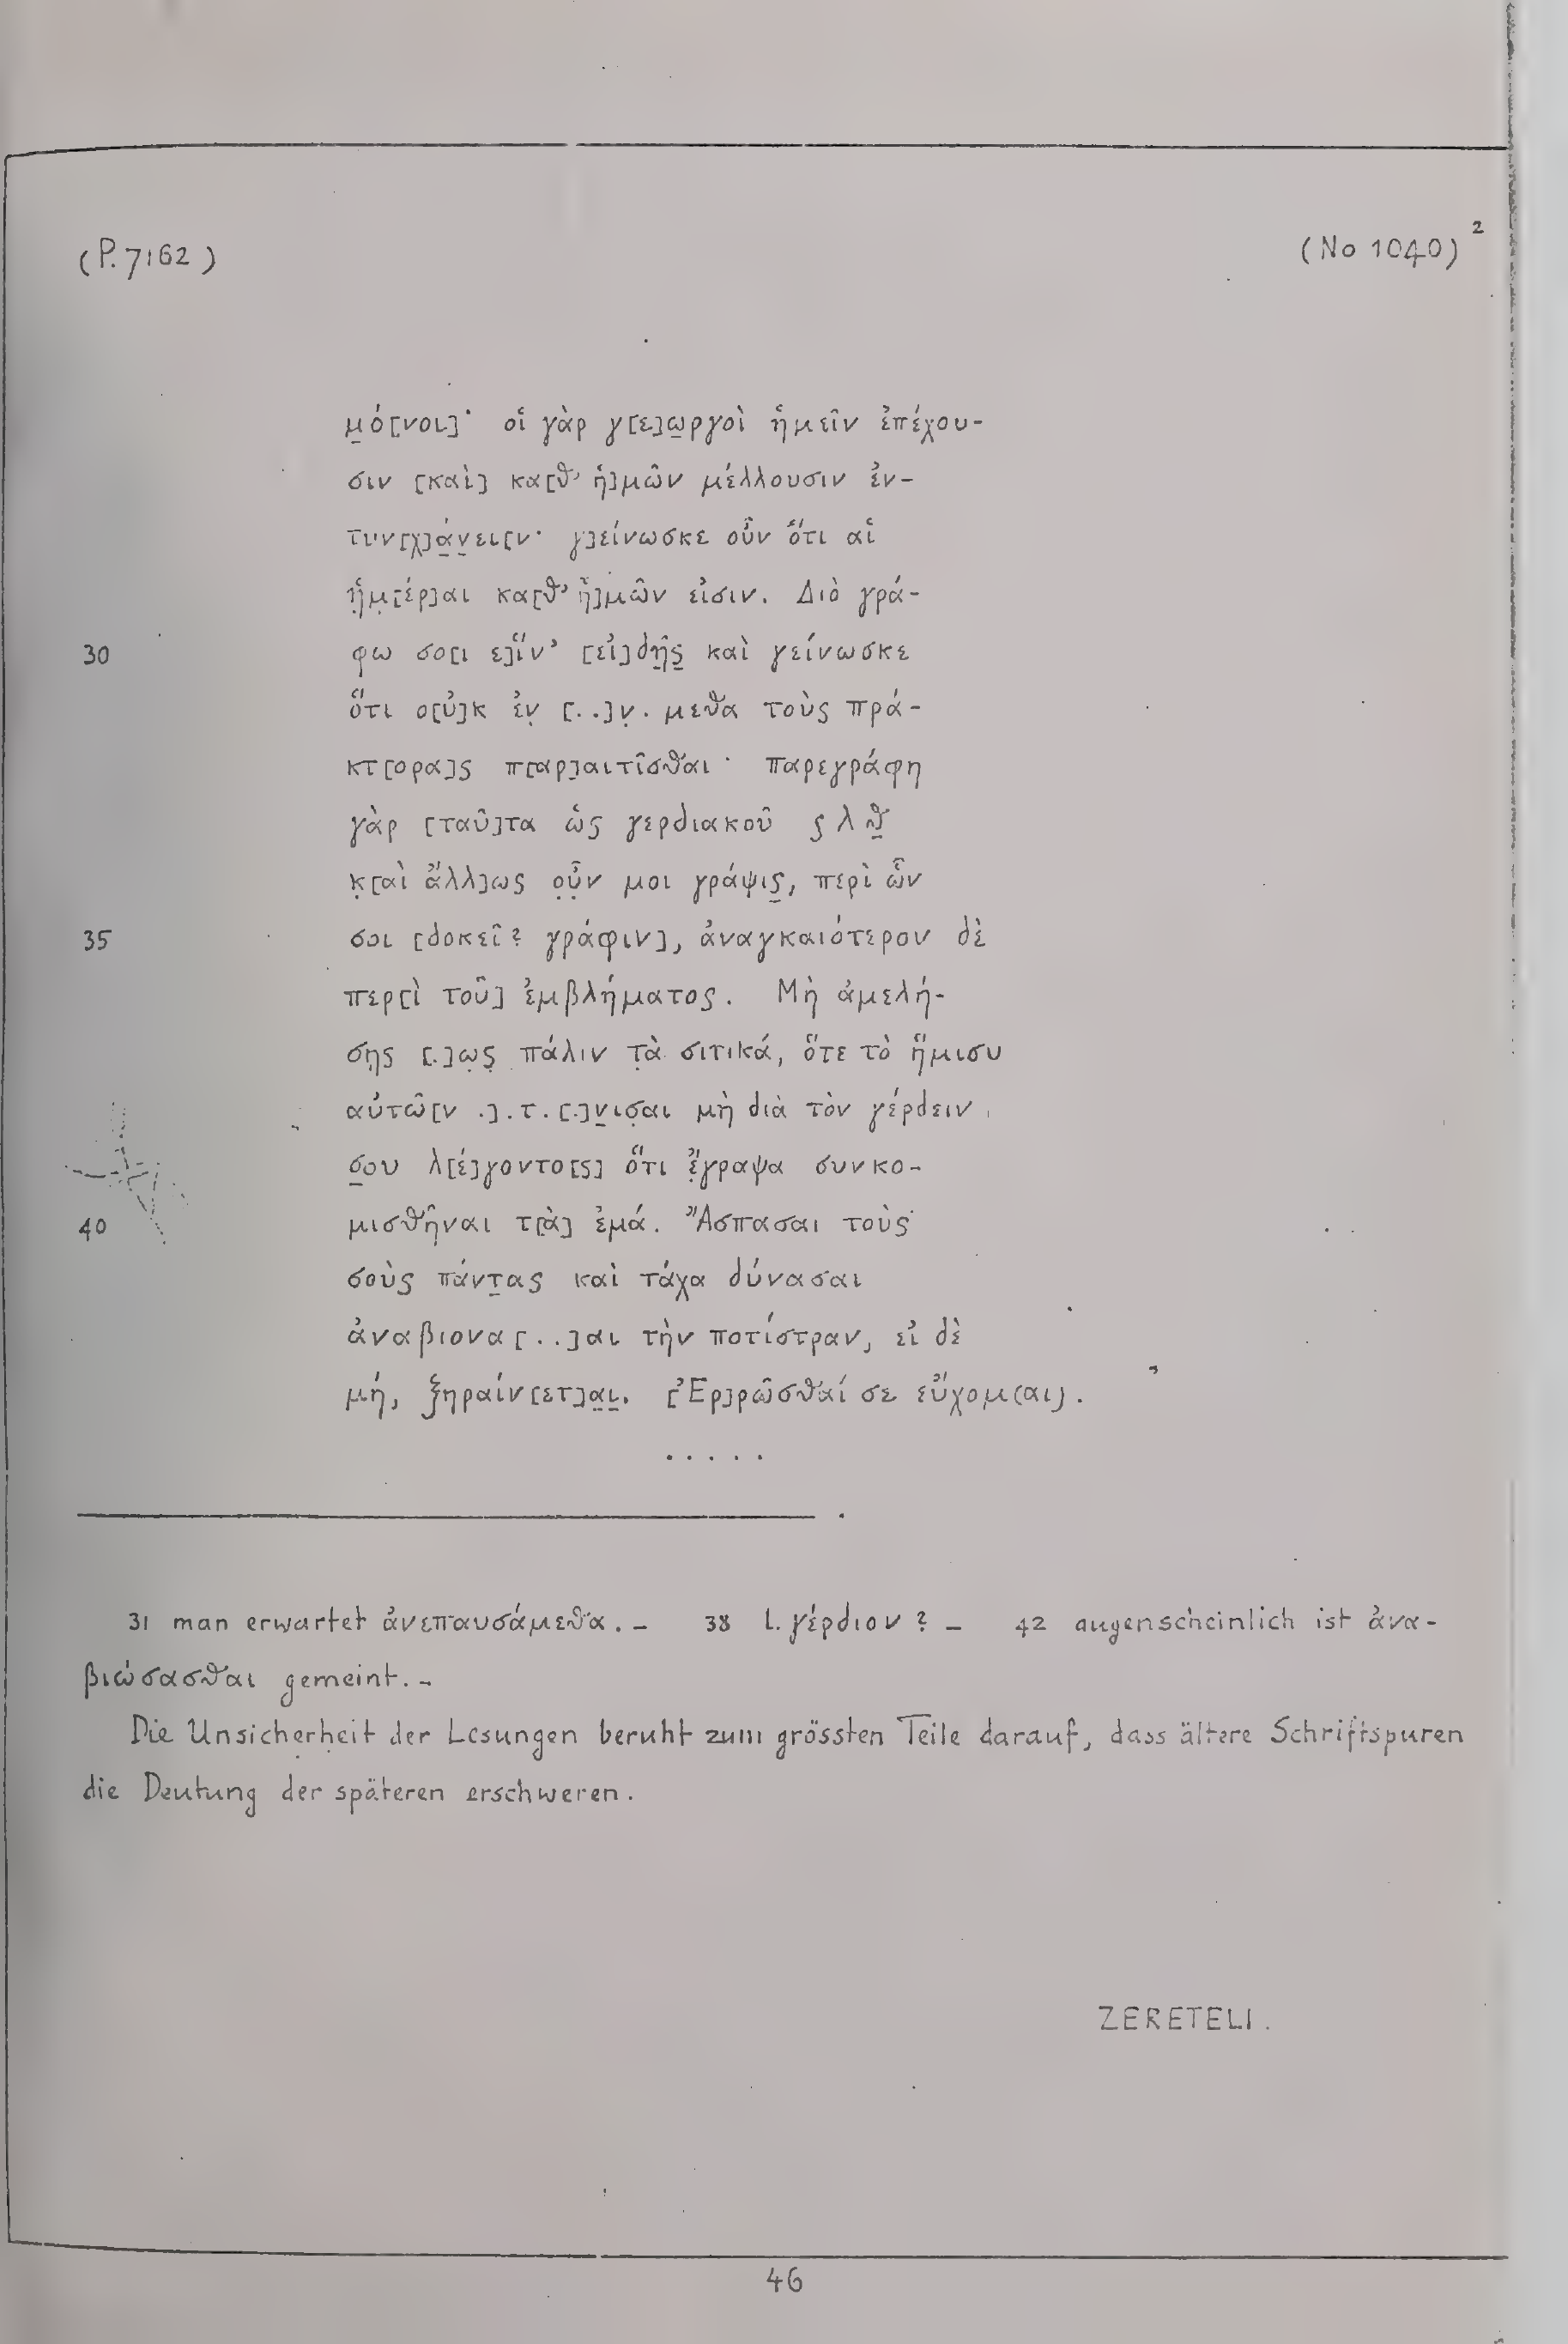 (P. 7162) (No 1040)²
μ̣ό[νοι]· οἱ γὰρ γ[ε]ω̣ργοὶ ἡμεῖν ἐπέχου-
σιν [καὶ] κα[θ' ἡ]μῶν μέλλουσιν ἐν-
τυν[χ]ά̣ν̣ει[ν· γ]είνωσκε οὖν ὅτι αἱ
ἡ̣μ̣[έρ]αι κα[θ' ἡ]μῶν εἰσιν. Διὸ γρά-
30 φω σο[ι ε]ἵν' [εἰ]δῇ̣ς̣ καὶ γείνωσκε
ὅτι ο[ὐ]κ ἐν̣ [..]ν̣. μεθα τοὺς πρά-
κτ[ορα]ς π[αρ]αιτῖσθαι · παρεγράφη
γὰρ [ταῦ]τα ὡς γερδιακοῦ ς λ θ̣
κ̣[αὶ ἄλλ]ως ο̣ὖ̣ν μοι γράψις̣, περὶ ὧν
35 σοι [δοκεῖ? γράφιν], ἀναγκαιότερον δὲ
περ[ὶ τοῦ] ἐμβλήματος. Μὴ ἀμελή-
ση̣ς [.]ω̣ς̣ πάλιν τ̣ὰ σιτικά, ὅτε τὸ ἥμισυ
αὐτῶ[ν .].τ.[.]ν̣ισ̣αι μὴ διὰ τὸν γέρδειν
σ̣ου λ[έ]γοντο[ς] ὅτι ἔ̣γραψα συνκο-
40 μισθῆναι τ[ὰ] ἐμά. Ἄσπασαι τοὺς
σοὺς πάντ̣ας καὶ τάχα δύνασαι
ἀναβιονα[..]αι τὴν ποτίστραν, εἰ δὲ
μή, ξηραίν[ετ]α̣ι̣. [Ἐρ]ρῶσθαί σε εὔχομ(αι).
.....
31 man erwartet ἀνεπαυσάμεθα. – 38 l. γέρδιον? – 42 augenscheinlich ist ἀνα-
βιώσασθαι gemeint. –
Die Unsicherheit der Lesungen beruht zum grössten Teile darauf, dass ältere Schriftspuren
die Deutung der späteren erschweren.
ZERETELI.
46